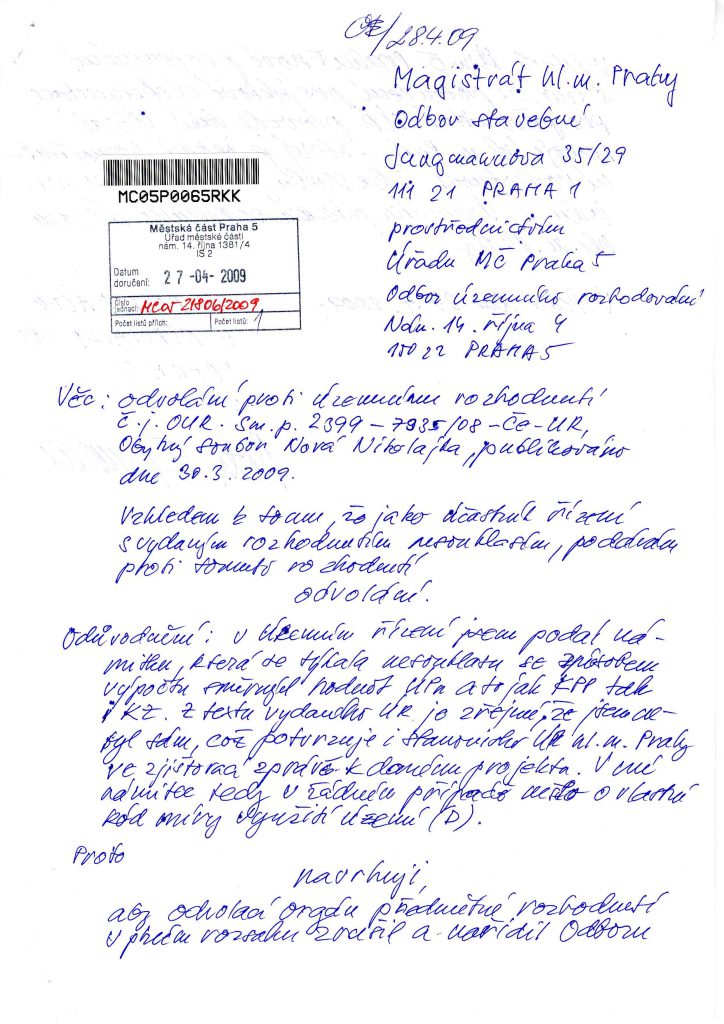 28.4.09
Magistrát hl. m. Prahy
Odbor stavební
Jungmannova 35/29
111 21 PRAHA 1
prostřednictvím
Úřadu MČ Praha 5
Odbor územního rozhodování
Nám. 14. října 4
150 22 PRAHA 5
MC05P0065RKK
Městská část Praha 5
Úřad městské části
nám. 14. října 1381/4
IS 2
Datum
doručení: 27 -04- 2009
Číslo
jednací: MC05 21806/2009
Počet listů příloh: Počet listů: 1
Věc: odvolání proti územnímu rozhodnutí
č.j. OUR. Sm.p. 2399-7935/08-Če-UR,
Obytný soubor Nová Nikolajka, publikováno
dne 30.3.2009.
Vzhledem k tomu, že jako účastník řízení
s vydaným rozhodnutím nesouhlasím, podávám
proti tomuto rozhodnutí
odvolání.
Odůvodnění: v územním řízení jsem podal ná-
mitku, která se týkala nesouhlasu se způsobem
výpočtu směrných hodnot ÚPn a to jak KPP tak
i KZ. Z textu vydaného ÚR je zřejmé, že jsem ne-
byl sám, což potvrzuje i stanovisko ÚR hl. m. Prahy
ve zjišťovací zprávě k danému projektu. V mé
námitce tedy v žádném případě nešlo o vlastní
kód míry využití území (D).
Proto
navrhuji,
aby odvolací orgán předmětné rozhodnutí
v plném rozsahu zrušil a nařídil Odboru